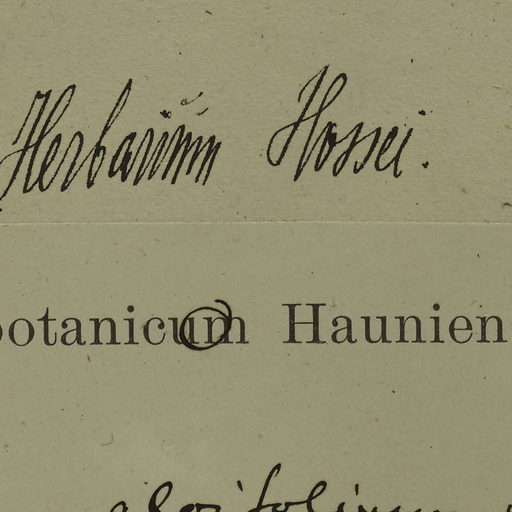 Herbarium Hossei.
botanicum Haunien